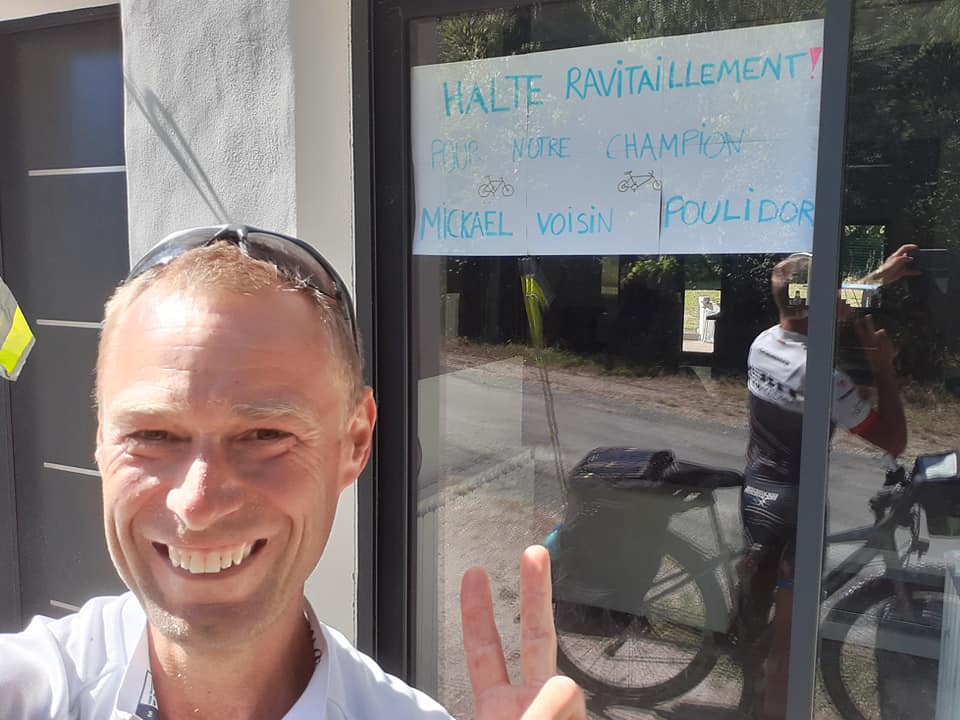 HALTE RAVITAILLEMENT!
POUR NOTRE CHAMPION
MICKAEL VOISIN POULIDOR